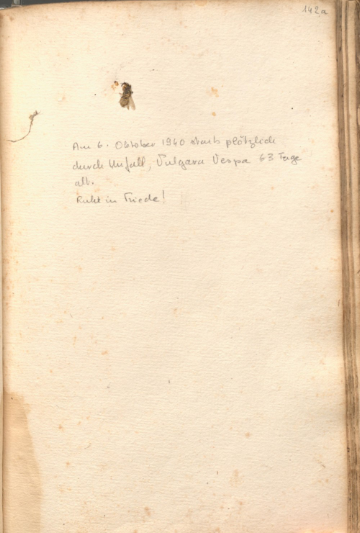 142a
Am 6. Oktober 1960 starb plötzlich
durch Unfall, Vulgara Vespa 63 Tage
alt.
Ruht in Friede!